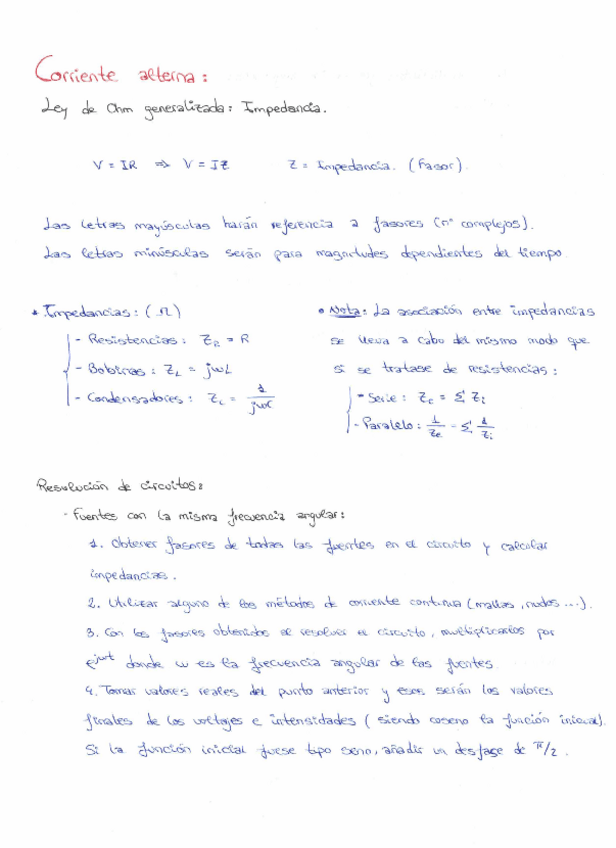 Corriente alterna:
Ley de Ohm generalizada: Impedancia.
V = IR ⇒ V = IZ   Z = Impedancia. (Fasor).
Las letras mayúsculas harán referencia a fasores (nº complejos).
Las letras minúsculas serán para magnitudes dependientes del tiempo
* Impedancias: (Ω)
- Resistencias: Z_R = R
- Bobinas: Z_L = jωL
- Condensadores: Z_C = 1/jωC
• Nota: La asociación entre impedancias
se lleva a cabo del mismo modo que
si se tratase de resistencias:
- Serie: Z_e = Σ Z_i
- Paralelo: 1/Z_e = Σ 1/Z_i
Resolución de circuitos:
- Fuentes con la misma frecuencia angular:
1. Obtener fasores de todas las fuentes en el circuito y calcular
impedancias.
2. Utilizar alguno de los métodos de corriente continua (mallas, nudos ...).
3. Con los fasores obtenidos al resolver el circuito, multiplicarlos por
e^jωt donde ω es la frecuencia angular de las fuentes.
4. Tomar valores reales del punto anterior y esos serán los valores
finales de los voltajes e intensidades (siendo coseno la función inicial).
Si la función inicial fuese tipo seno, añadir un desfase de π/2.